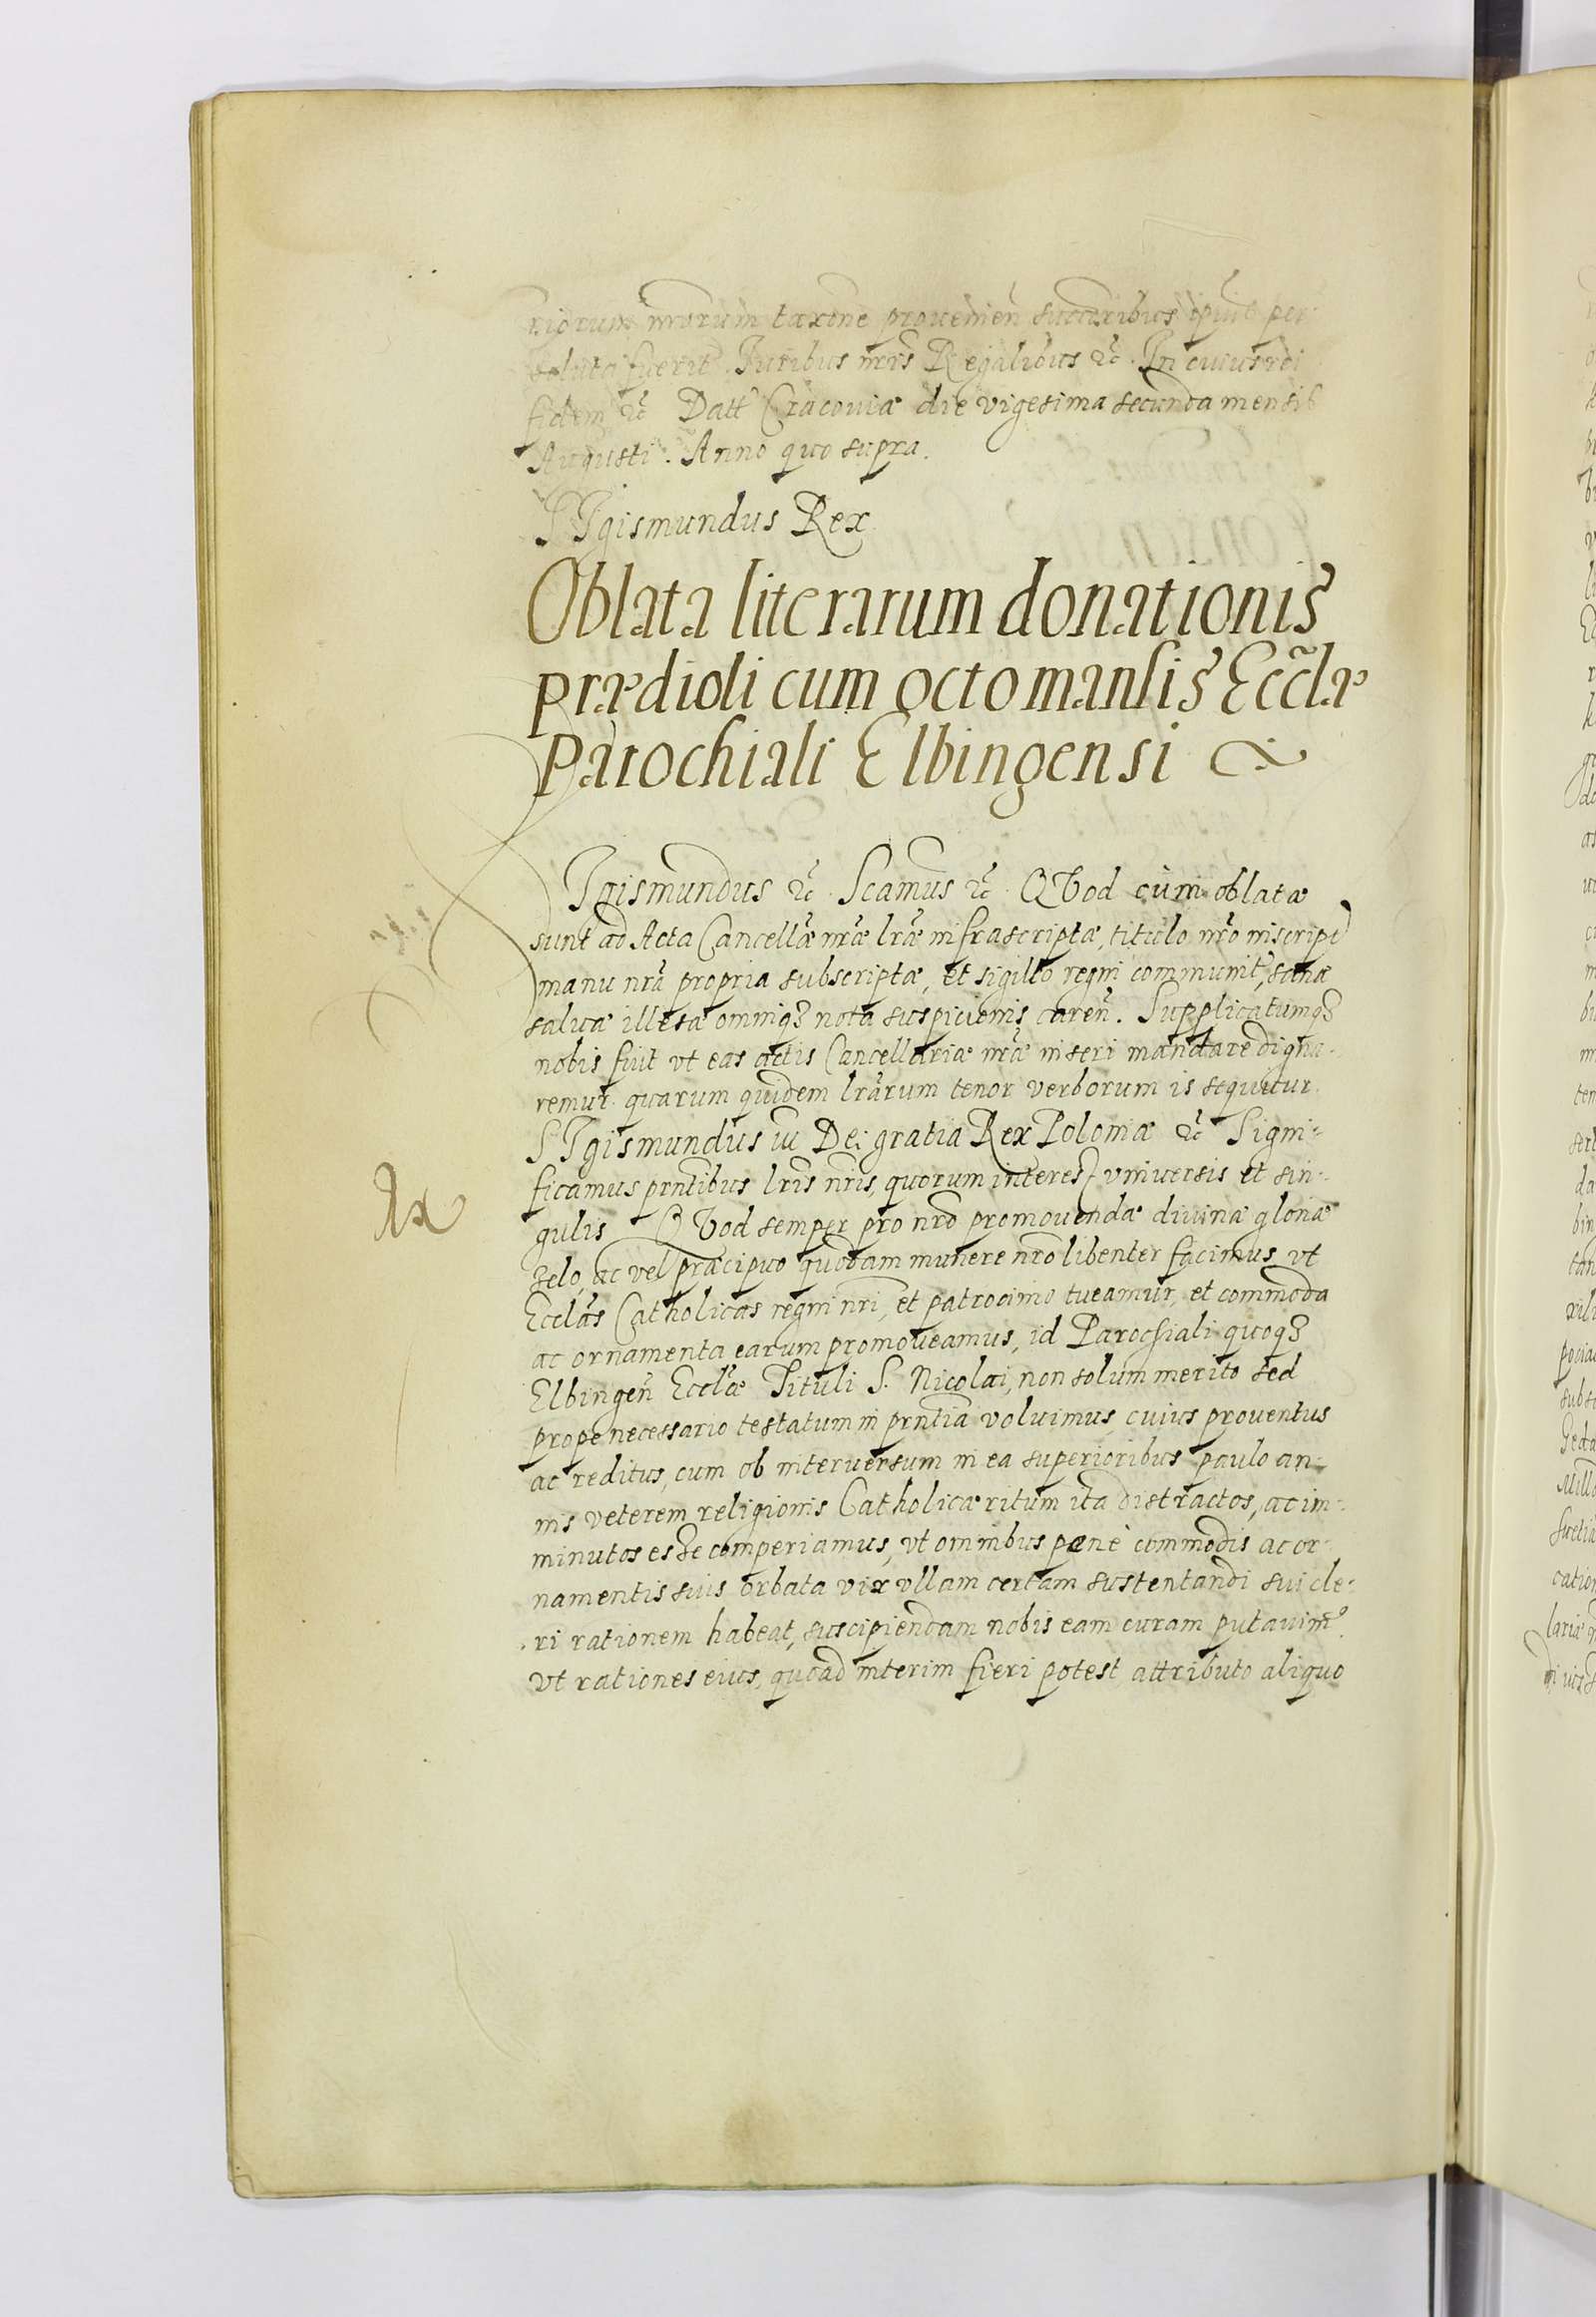 riorum nrorum taxõne prouenieñ successoribus ipsius per
soluta fuerit. Iuribus nrĩs Regalibus &c. In cuius rei
fidem &c. Datt Cracouiæ die vigesima secunda mensis
Augusti. Anno quo supra.
SIgismundus Rex
Oblata literarum donationis
prædioli cum octo mansis Eccl̃æ
Parochiali Elbingensi
SIgismundus &c. Scamus &c. QVod cum oblatæ
sunt ad Acta Cancellæ nræ lræ infrascriptæ, titulo nrõ inscriptæ
manu nrã propria subscriptæ, et sigillo regni communit, sanæ
saluæ illesæ omniq3 nota suspicionis careñ. Supplicatumq3
nobis fuit vt eas actis Cancellariæ nræ inseri mandare digna-
remur. quarum quidem lrarum tenor verborum is sequitur.
SIgismundus iii Dei gratia Rex Poloniæ &c. Signi-
ficamus prntibus lris nris, quorum interest vniuersis et sin-
gulis QVod semper pro nrõ promouendæ diuinæ gloriæ
Rx
zelo, ac vel præcipuo quodam munere nrõ libenter facimus, vt
Ecclãs Catholicas regni nri, et patrocinio tueamur, et commoda
ac ornamenta earum promoueamus, id Parochiali quoq3
Elbingeñ Eccl̃æ Tituli S. Nicolai, non solum merito sed
prope necessario testatum in prntia voluimus, cuius prouentus
ac reditus, cum ob interuersum in ea superioribus paulo an-
nis veterem religionis Catholicæ ritum ita distractos, ac im-
minutos esse comperiamus, vt omnibus pæne commodis ac or-
namentis suis orbata vix vllam certam sustentandi sui cle-
ri rationem habeat, suscipiendam nobis eam curam putauim9
vt rationes eius, quoad interim fieri potest attributo aliquo